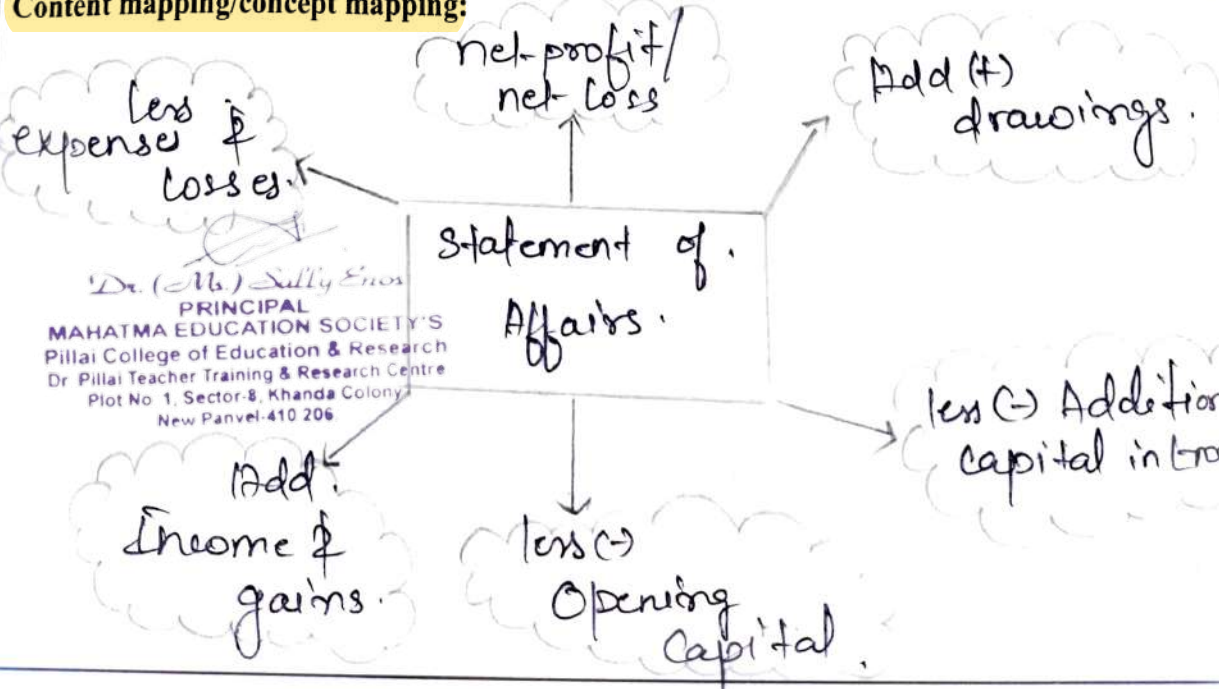 Content mapping/concept mapping:
net-profit/
net-loss
Add (+)
drawings.
less
expense &
losses.
Statement of.
Affairs.
Dr. (Ms.) Sally Enos
PRINCIPAL
MAHATMA EDUCATION SOCIETY'S
Pillai College of Education & Research
Dr Pillai Teacher Training & Research Centre
Plot No 1, Sector-8, Khanda Colony
New Panvel-410 206
less (-) Addition
capital intro
Add:
Income &
gains.
less (-)
Opening
Capital.